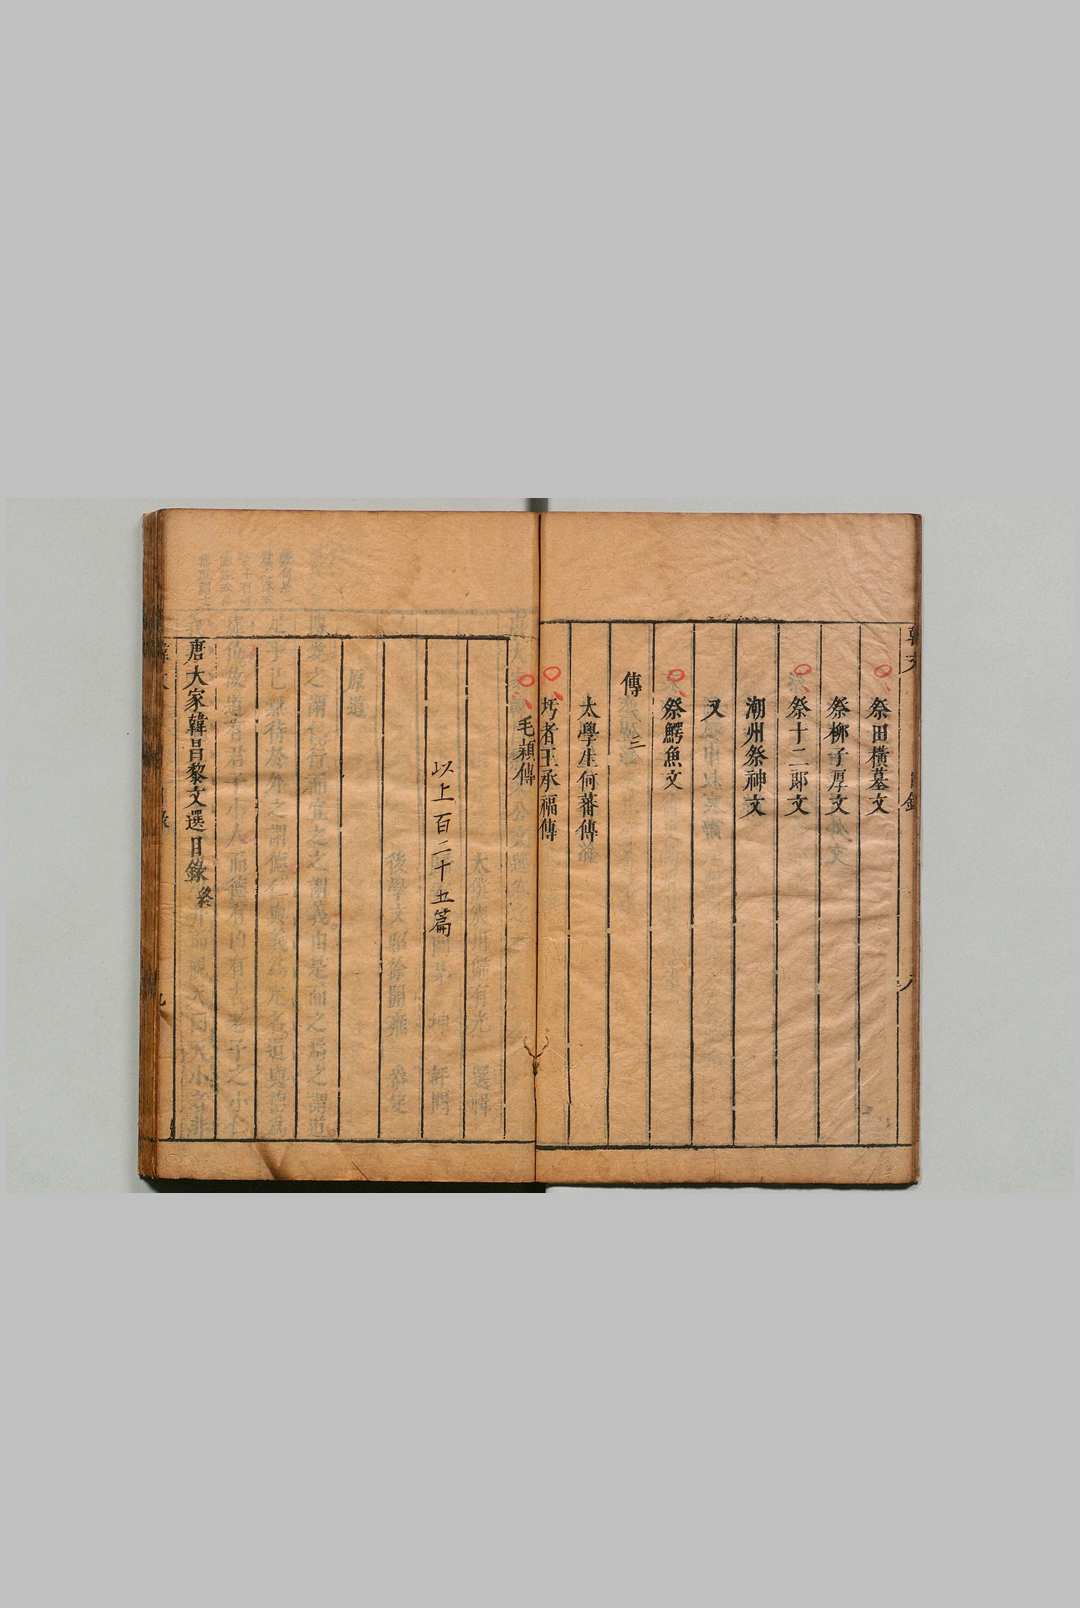 祭田橫墓文
祭柳子厚文
祭十二郎文
潮州祭神文
又
祭鱷魚文
傳 三
太學生何蕃傳
圬者王承福傳
毛穎傳
以上百二十五篇
唐大家韓昌黎文選目錄終